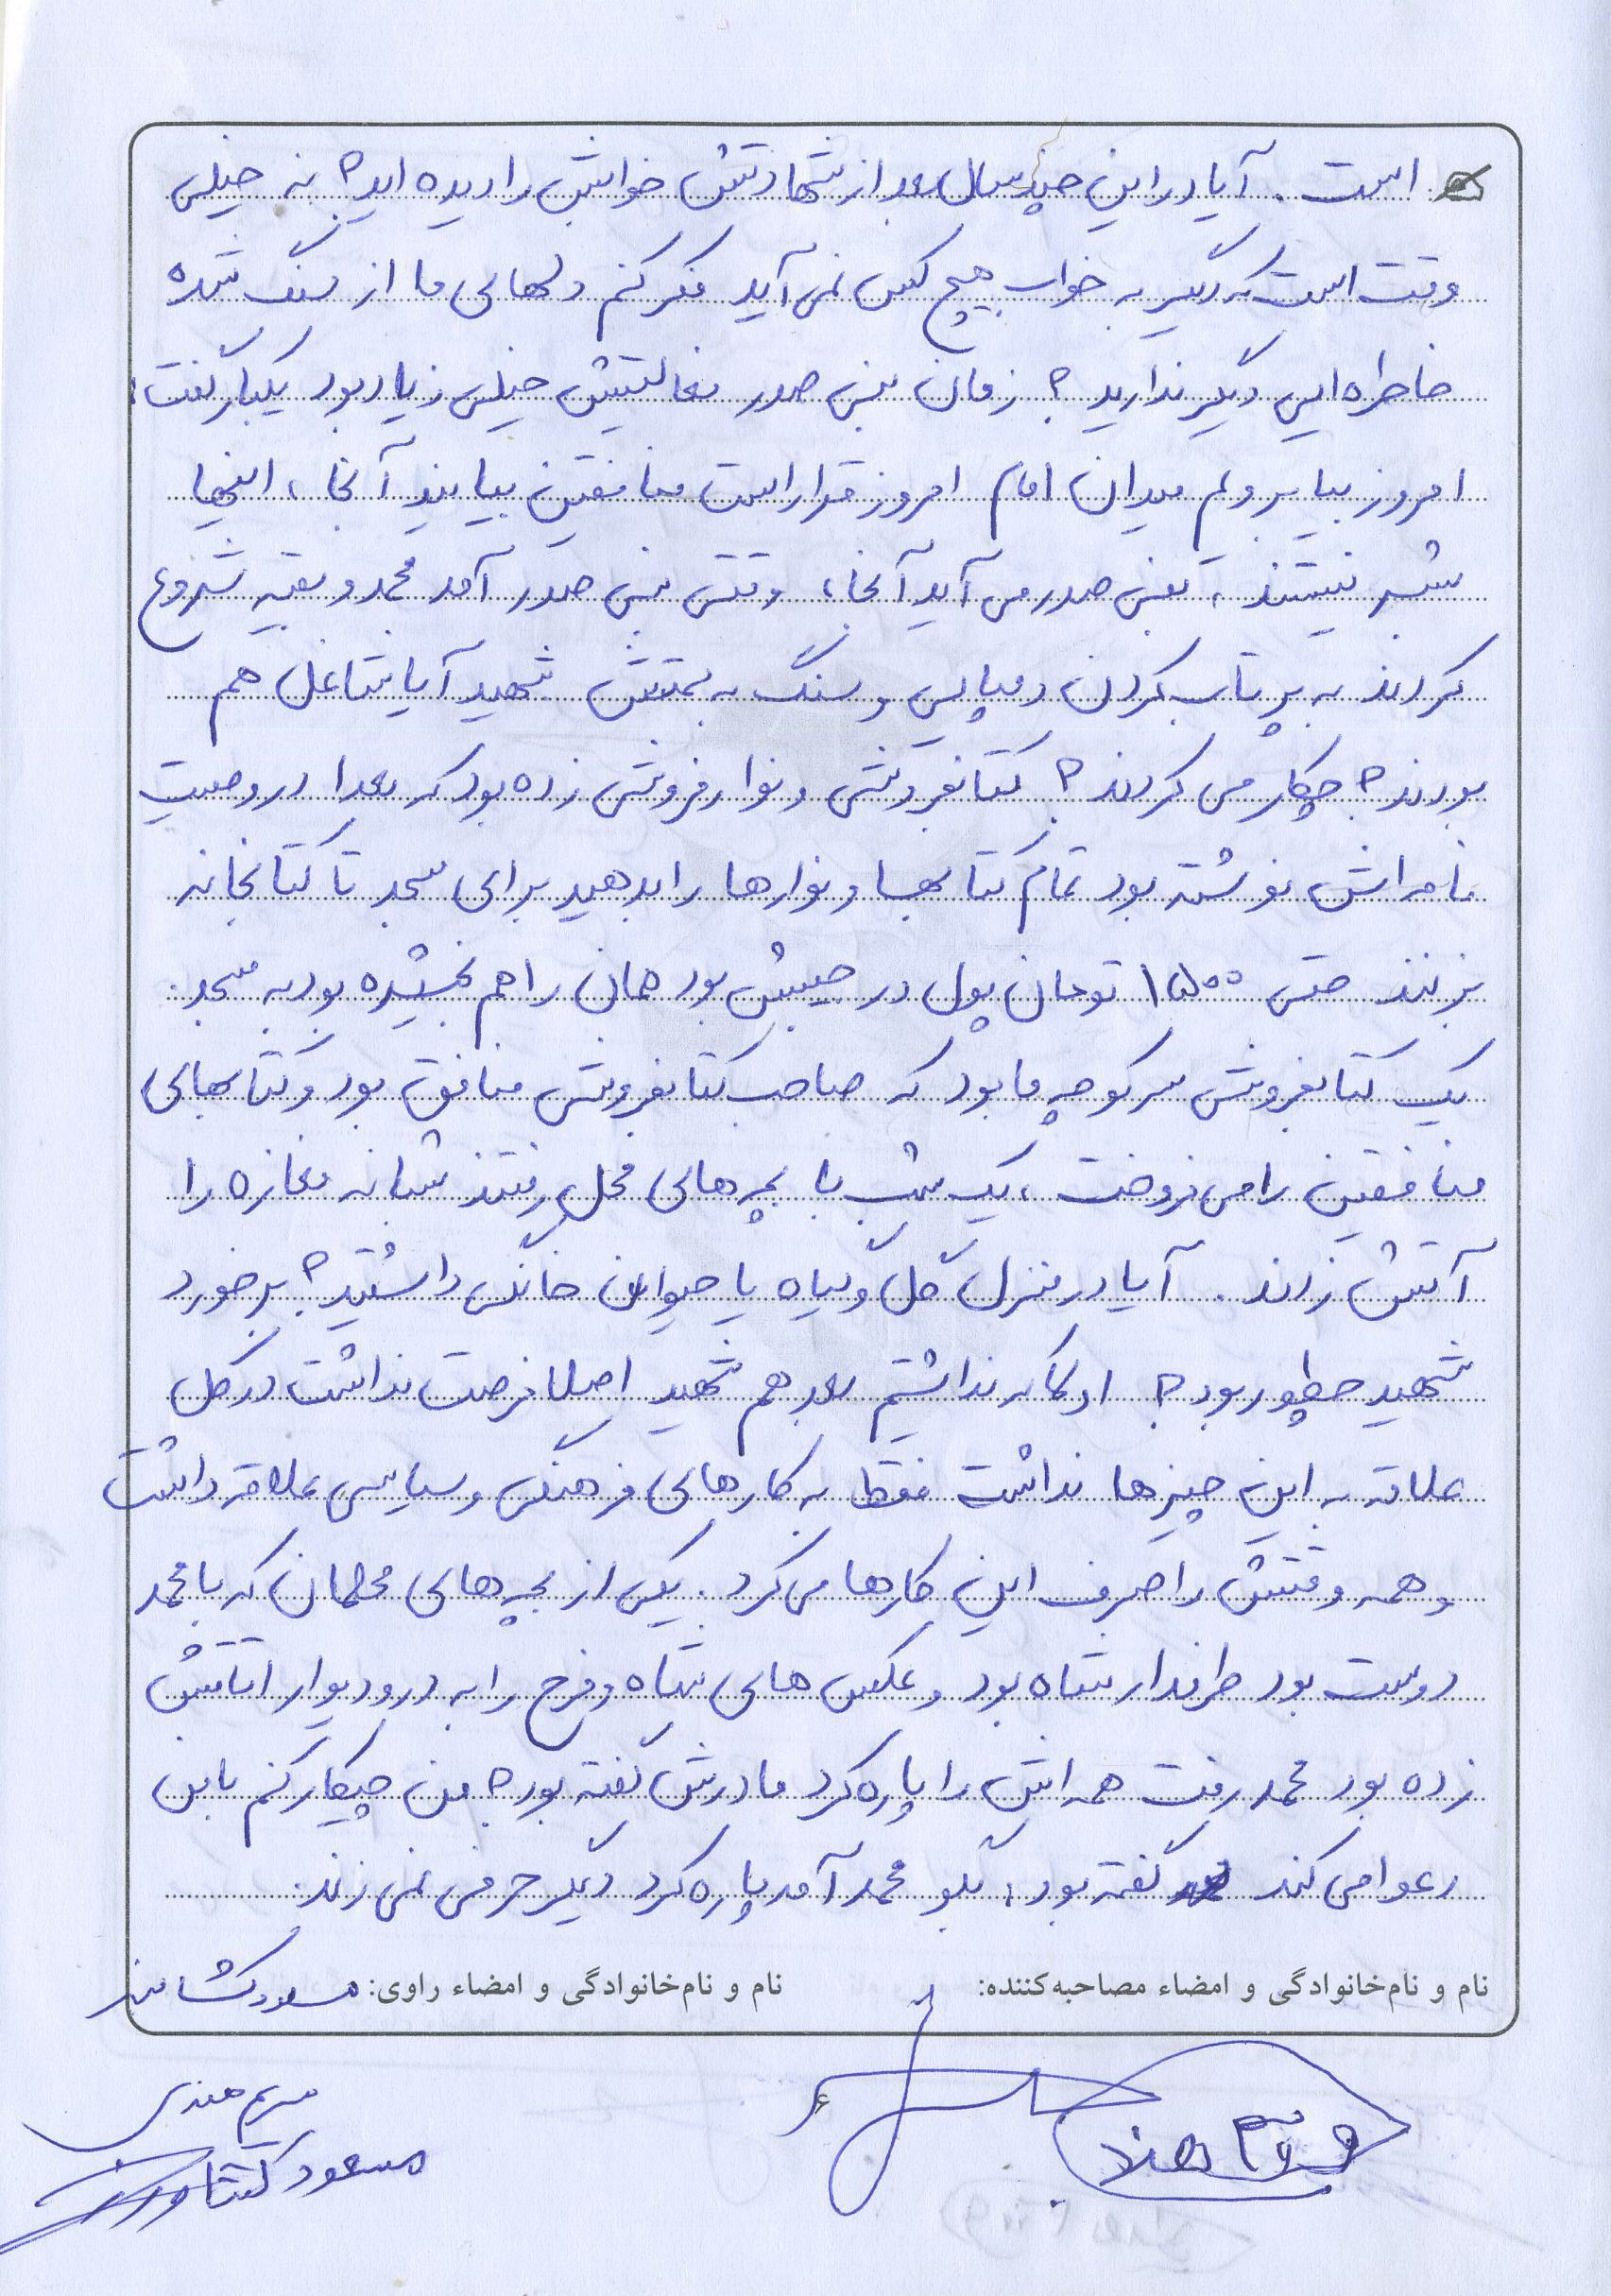 است. آیا در این چند سال بعد از شهادتش خوابش را دیده اید؟ نه خیلی
وقت است که دیگر به خواب هیچ کس نمی آید فکر کنم دلهای ما از سنگ شده
خاطره ایی دیگر ندارید؟ زمان بنی صدر فعالیتش خیلی زیاد بود یکبار گفت:
امروز بیا برویم میدان امام امروز قرار است منافقین بیایند آنجا، اینها
بشر نیستند، بنی صدر می آید آنجا، وقتی بنی صدر آمد محمد و بقیه شروع
کردند به پرتاب کردن دمپایی و سنگ به سمتش شهید آیا شاغل هم
بودند؟ چکار می کردند؟ کتابفروشی و نوار فروشی زده بود که بعدا در وصیت
نامه اش نوشته بود تمام کتابها و نوارها را بدهید برای مسجد تا کتابخانه
بزنند حتی ۱۵۰۰ تومان پول در جیبش بود همان را هم بخشیده بود به مسجد.
یک کتابفروشی سر کوچه ما بود که صاحب کتابفروشی منافق بود و کتابهای
منافقین را می فروخت، یک شب با بچه های محل رفتند شبانه مغازه را
آتش زدند. آیا در منزل گل و گیاه یا حیوان خانگی داشتید؟ برخورد
شهید چطور بود؟ اولا که نداشتیم بعد هم شهید اصلا فرصت نداشت در کل
علاقه به این چیزها نداشت فقط به کارهای فرهنگی و سیاسی علاقه داشت
و همه وقتش را صرف این کارها می کرد. یکی از بچه های محلمان که با محمد
دوست بود طرفدار شاه بود و عکس های شاه و فرح را به در و دیوار اتاقش
زده بود محمد رفت همه اش را پاره کرد مادرش گفته بود؟ من چیکار کنم بابا
دعوا می کند گفته بود: بگو محمد آمد پاره کرد دیگر حرفی نمی زند.
نام و نام‌خانوادگی و امضاء مصاحبه‌کننده: نام و نام‌خانوادگی و امضاء راوی: مسعود
۶
مریم هندی
مسعود کشاورز